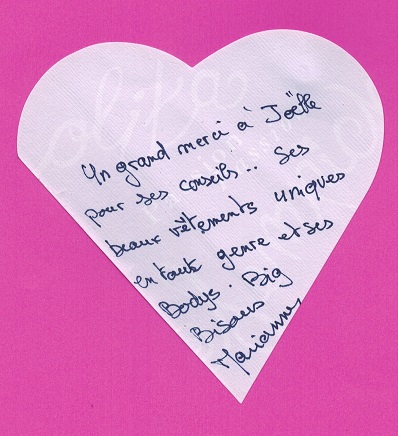 Un grand merci à Joëlle
pour ses conseils.. ses
beaux vêtements uniques
en tout genre et ses
Bodys. Big
Bisous
Marianne